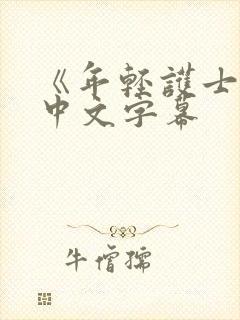 《年轻護士
中文字幕
牛僧孺